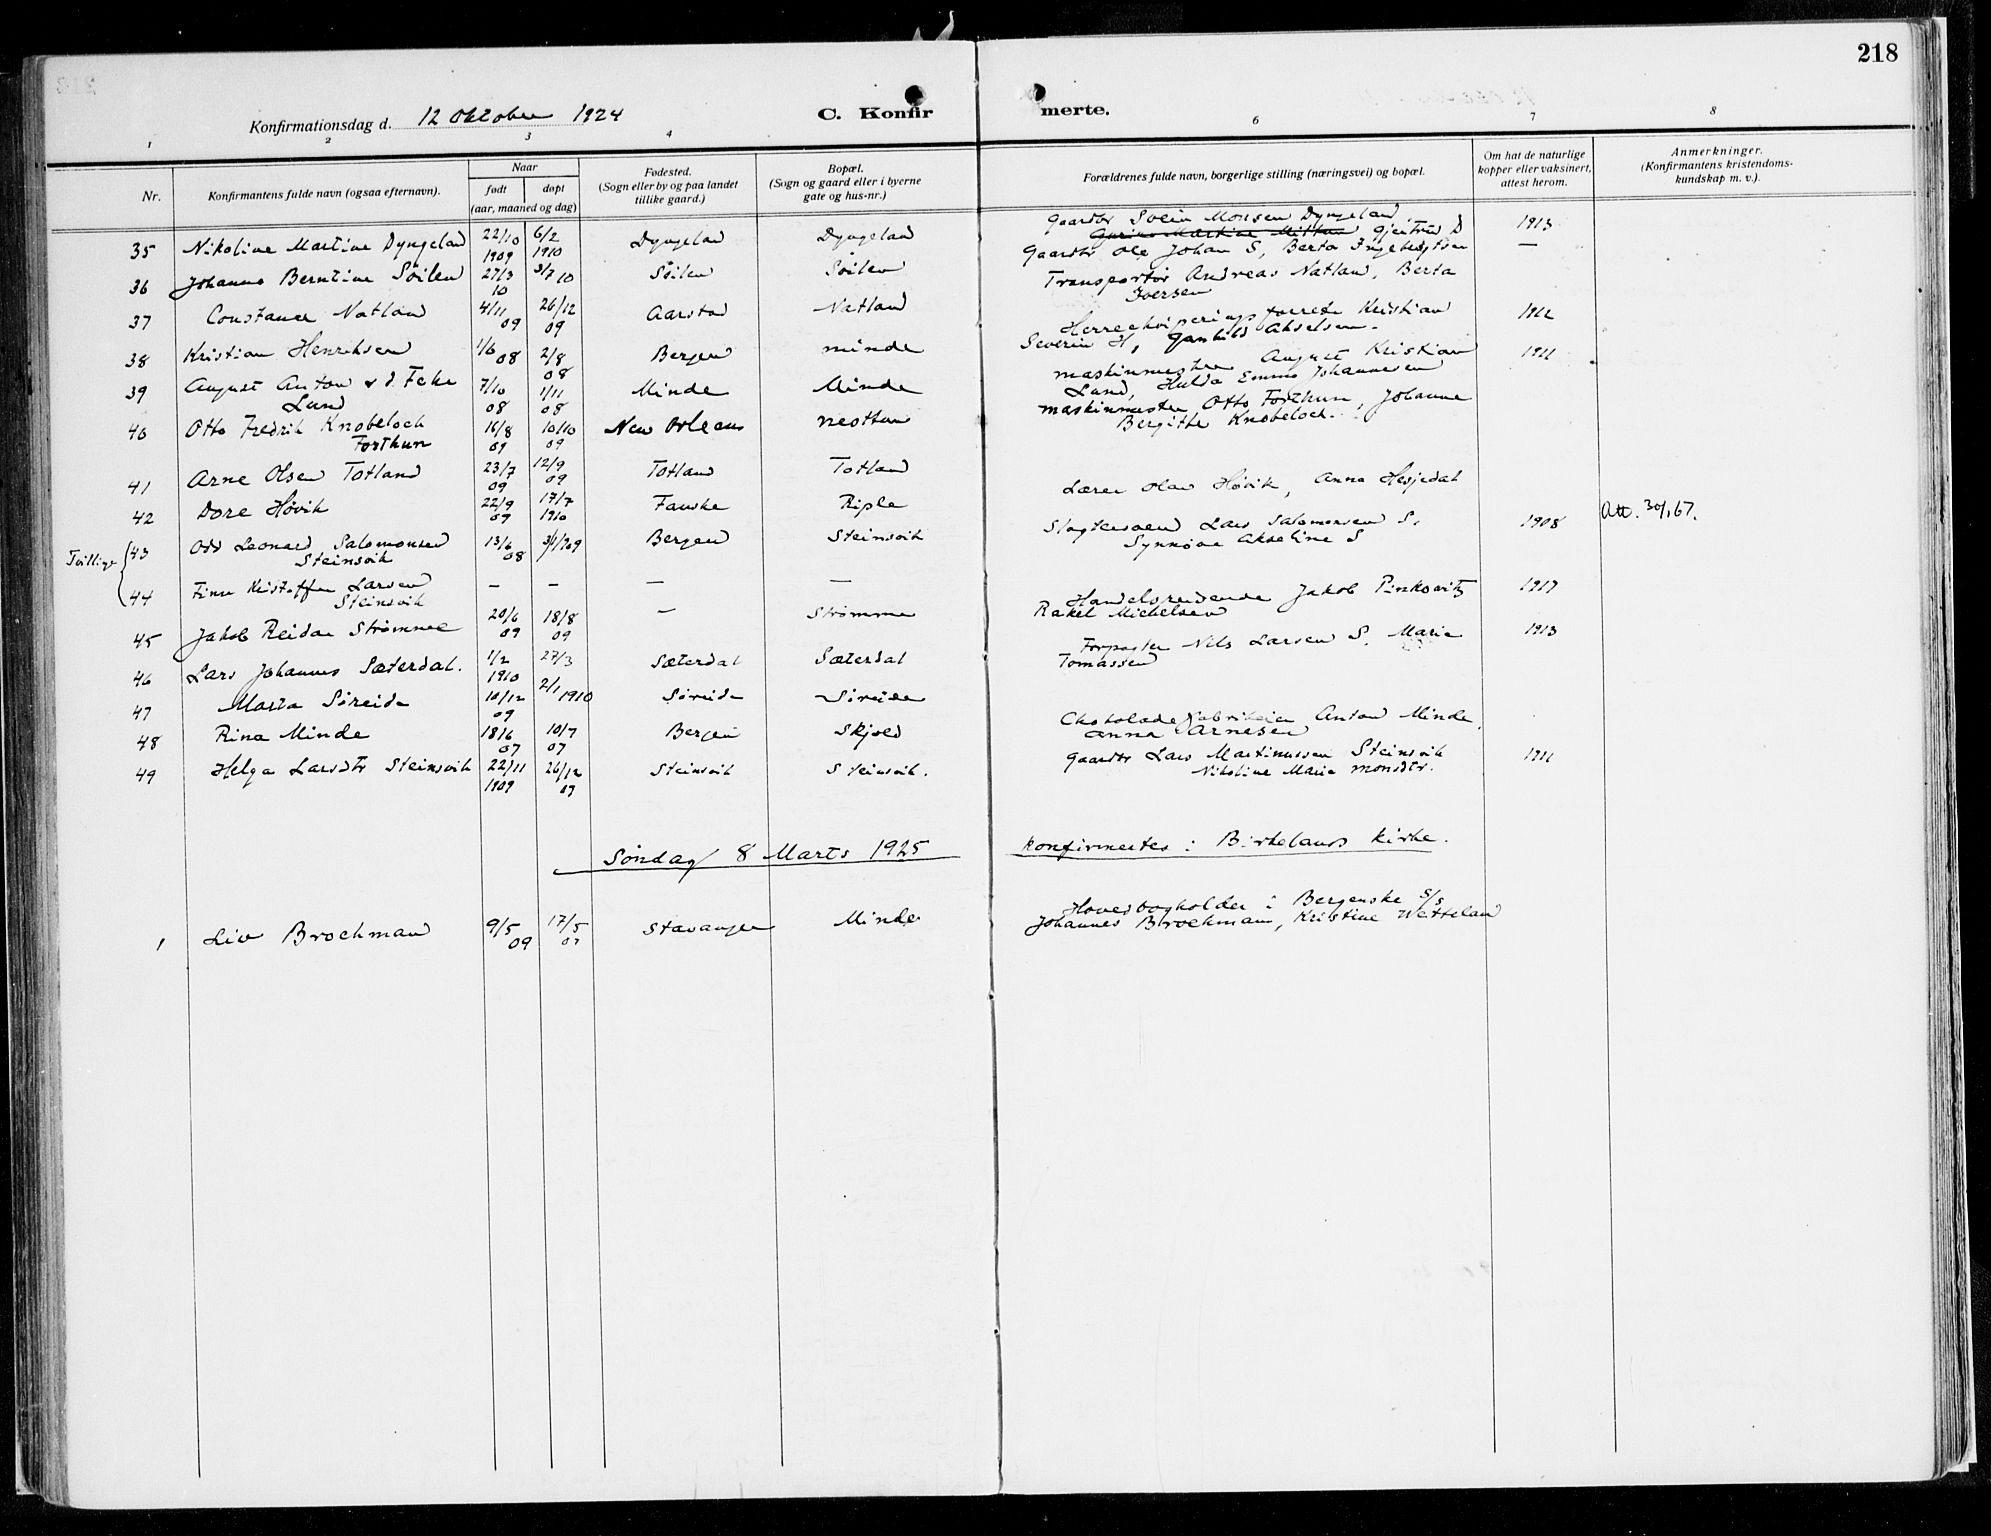 218
Konfirmationsdag d. 12 Oktober 1924
C. Konfir
merte.
1 2 3 4 6 7 8
Nr.
Konfirmantens fulde navn (ogsaa efternavn).
Naar
født døpt
(aar, maaned og dag)
Fødested.
(Sogn eller by og paa landet
tillike gaard.)
Bopæl.
(Sogn og gaard eller i byerne
gate og hus-nr.)
Forældrenes fulde navn, borgerlige stilling (næringsvei) og bopæl.
Om hat de naturlige
kopper eller vaksinert,
attest herom.
Anmerkninger.
(Konfirmantens kristendoms-
kundskap m. v.).
35 Nikoline Martine Dyngeland 22/10 1909 6/2 1910 Dyngeland Dyngeland
Gaardbr Svein Monsen Dyngeland Gjertrud D 1913
36 Johanne Berntine Söilen 27/3 10 3/7 10 Söilen Söilen
Gaardbr Ole Johan S, Berta Ingebrigtsen —
37 Constance Natland 4/11 09 26/12 09 Aarstad Natland
Transportör Andreas Natland, Berta
Iversen
38 Kristian Henriksen 1/6 08 2/8 08 Bergen Minde
Herreekviperingsforretn Kristian 1922
Severin H, Gunhild Akselsen.
39 August Anton v. d. Fehr 7/10 08 1/11 08 Minde Minde
Lund
maskinmester August Kristian 1921
Lund, Hulda Emma Johannesen
40 Otto Fredrik Knobeloch 16/8 09 10/10 09 New Orleans Nesttun
Forthun
maskinmester Otto Forthun, Johanne
Bergitte Knobeloch.
41 Arne Olsen Totland 23/7 09 12/9 09 Totland Totland
42 Dore Hövik 22/9 09 17/7 1910 Fauske Riple
Lærer Olav Hövik, Anna Hesjedal
Tvillinge
43 Odd Leonard Salomonsen 13/6 08 Bergen Steinsvik
Steinsvik
Slagtersvend Lars Salomonsen S. 1908 Att. 30/1 67.
Synnöve Akseline S
44 Finn Kristoffer Larsen — — — —
Steinsvik
45 Jakob Reidar Strømme 20/6 09 18/8 09 — Strømme
Handelsreisende Jakob Pinkowitz 1917
Rakel Michelsen
46 Lars Johannes Sæterdal. 1/2 1910 27/3 Sæterdal Sæterdal
Forpagter Nils Larsen S. Marie 1913
Tomassen
47 Marta Söreide 10/12 09 2/1 1910 Söreide Söreide
48 Rina Minde 18/6 07 10/7 07 Bergen Skjold
Chokoladefabrikeier Anton Minde
Anna Arnesen
49 Helga Larsdtr Steinsvik 22/11 1909 26/12 09 Steinsvik Steinsvik.
Gaardbr Lars Martinussen Steinsvik 1911
Nikoline Marie Monsdtr.
Söndag 8 Marts 1925
konfirmertes i Birkelands kirke.
1 Liv Brochman 9/5 09 17/5 Stavanger Minde
Hovedbogholder i Bergenske S/S
Johannes Brochmann, Kristine Vetteland